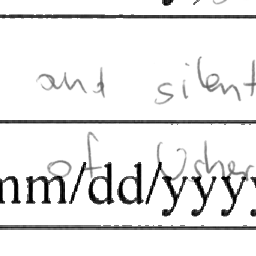 and silent
of Usher
mm/dd/yyyy